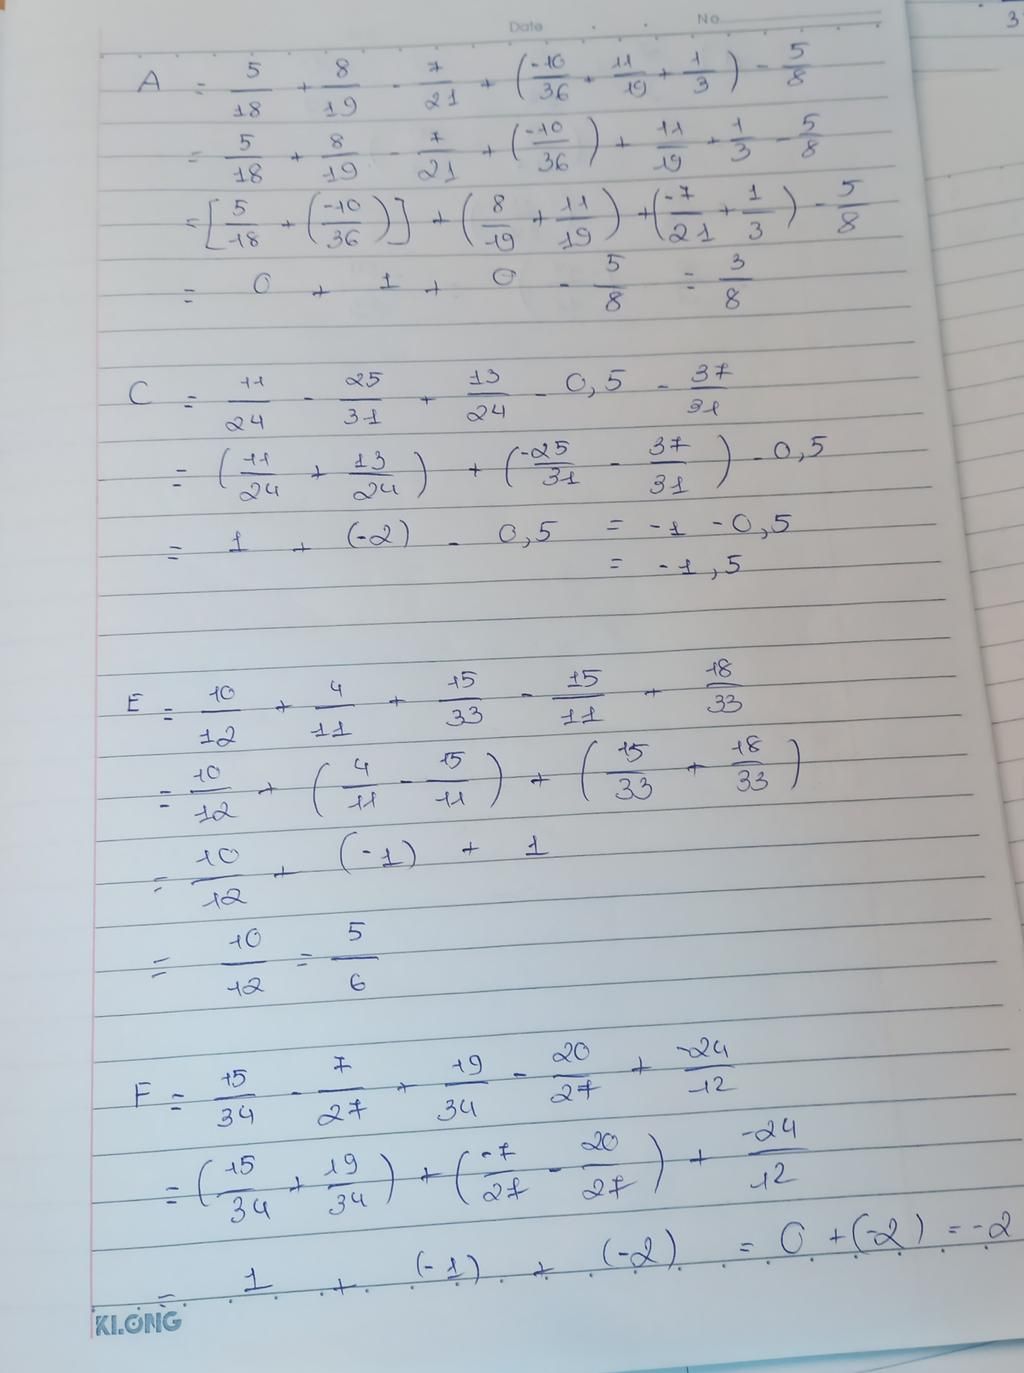 Date No
3
A = 5/18 + 8/19 - 7/21 + (-10/36 + 11/19 + 1/3) - 5/8
= 5/18 + 8/19 - 7/21 + (-10/36) + 11/19 + 1/3 - 5/8
= [5/18 + (-10/36)] + (8/19 + 11/19) + (-7/21 + 1/3) - 5/8
= 0 + 1 + 0 - 5/8 = 3/8
C = 11/24 - 25/31 + 13/24 - 0,5 - 37/31
= (11/24 + 13/24) + (-25/31 - 37/31) - 0,5
= 1 + (-2) - 0,5 = -1 - 0,5
= -1,5
E = 10/12 + 4/11 + 15/33 - 15/11 + 18/33
= 10/12 + (4/11 - 15/11) + (15/33 + 18/33)
= 10/12 + (-1) + 1
= 10/12 = 5/6
F = 15/34 - 7/27 + 19/34 - 20/27 + -24/12
= (15/34 + 19/34) + (-7/27 - 20/27) + -24/12
= 1 + (-1) + (-2) = 0 + (-2) = -2
KLONG